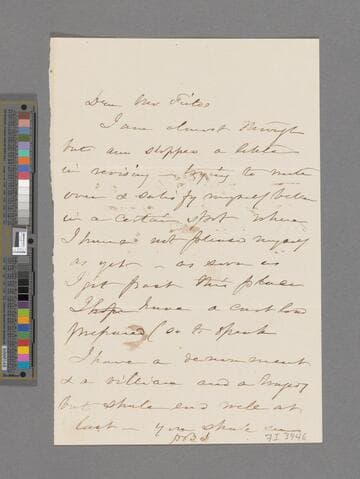 Dear Mr Fields
I am almost through
but am stopped a little
in revising — trying to write
over & satisfy myself better
in a certain spot where
I have not pleased myself
as yet — as soon as
I get past this place
I hope have a
prepared so to speak
I have a denouement
& a villain and a tragedy
but shall end well at
last — you shall
FI 3946